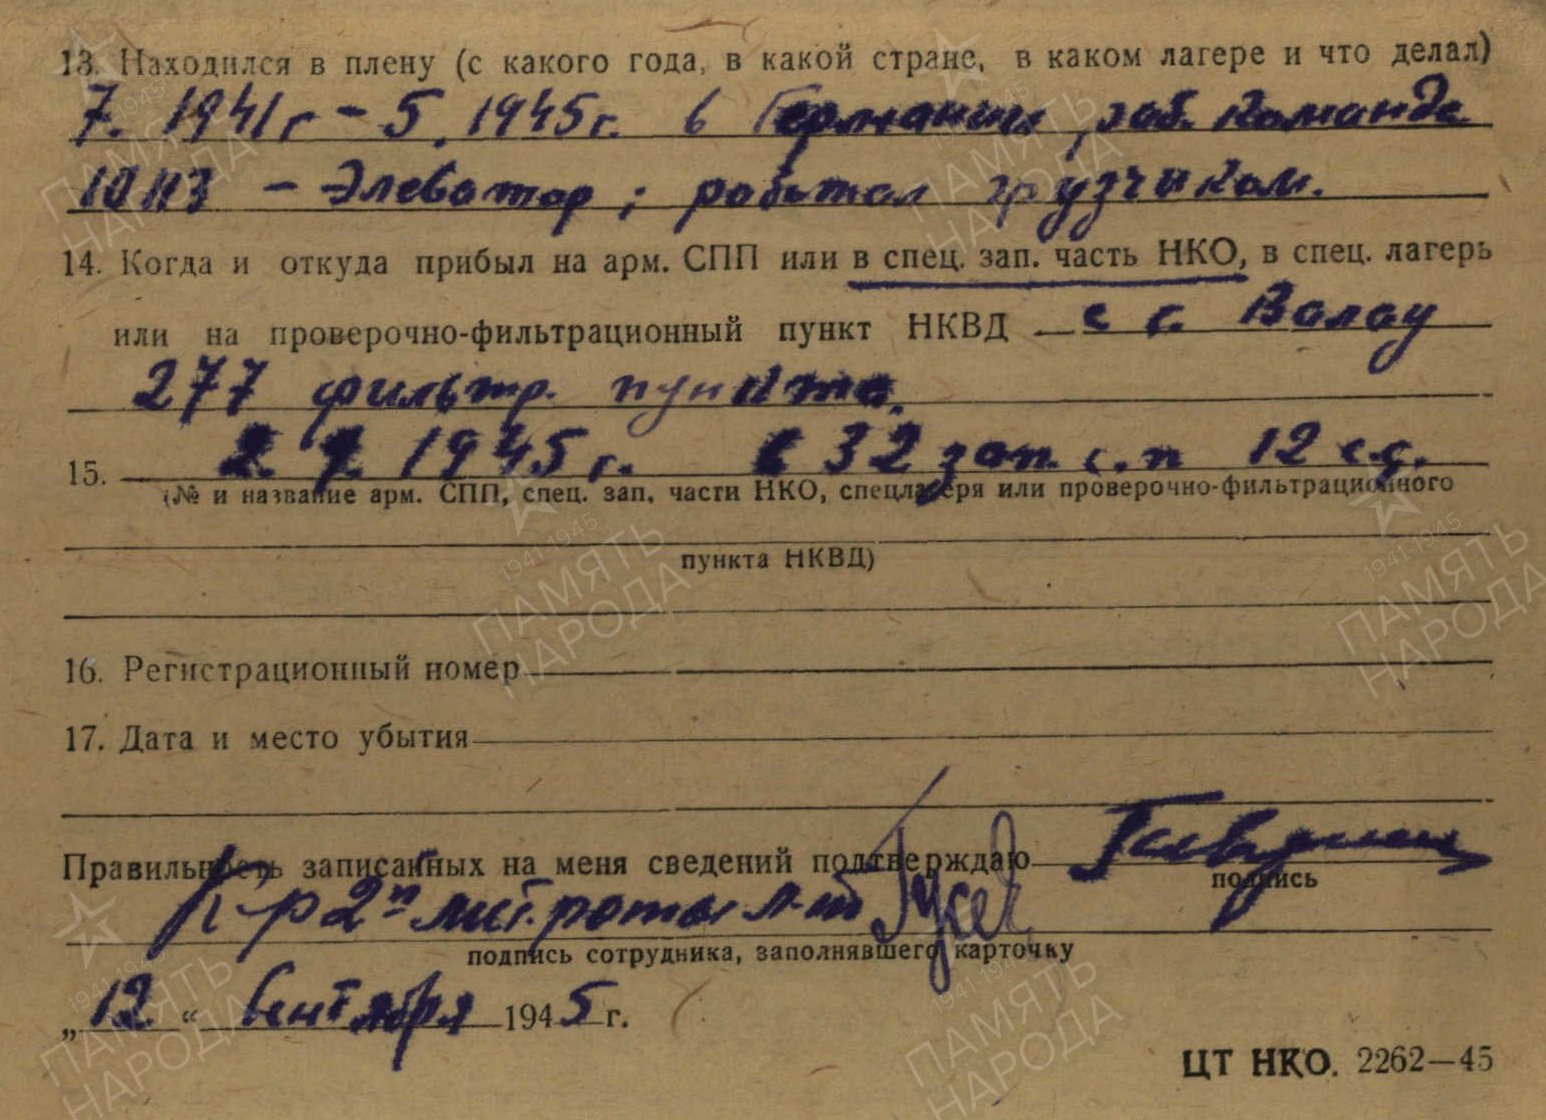 13. Находился в плену (с какого года, в какой стране, в каком лагере и что делал)
7. 1941 г – 5. 1945 г. в Германии, раб. команда
10113 – Элеватор; работал грузчиком.
14. Когда и откуда прибыл на арм. СПП или в спец. зап. часть НКО, в спец. лагерь
или на проверочно-фильтрационный пункт НКВД с г. Волау
277 фильтр. пункта.
15. 2. 9. 1945 г. в 32 зап. с.п 12 с.д.
(№ и название арм. СПП, спец. зап. части НКО, спецлагеря или проверочно-фильтрационного
пункта НКВД)
16. Регистрационный номер
17. Дата и место убытия
Правильность записанных на меня сведений подтверждаю
подпись
К-р 2й мит. роты л-нт Гусев
подпись сотрудника, заполнявшего карточку
„12“ Сентября 1945 г.
ЦТ НКО. 2262—45
1941-1945
ПАМЯТЬ
НАРОДА